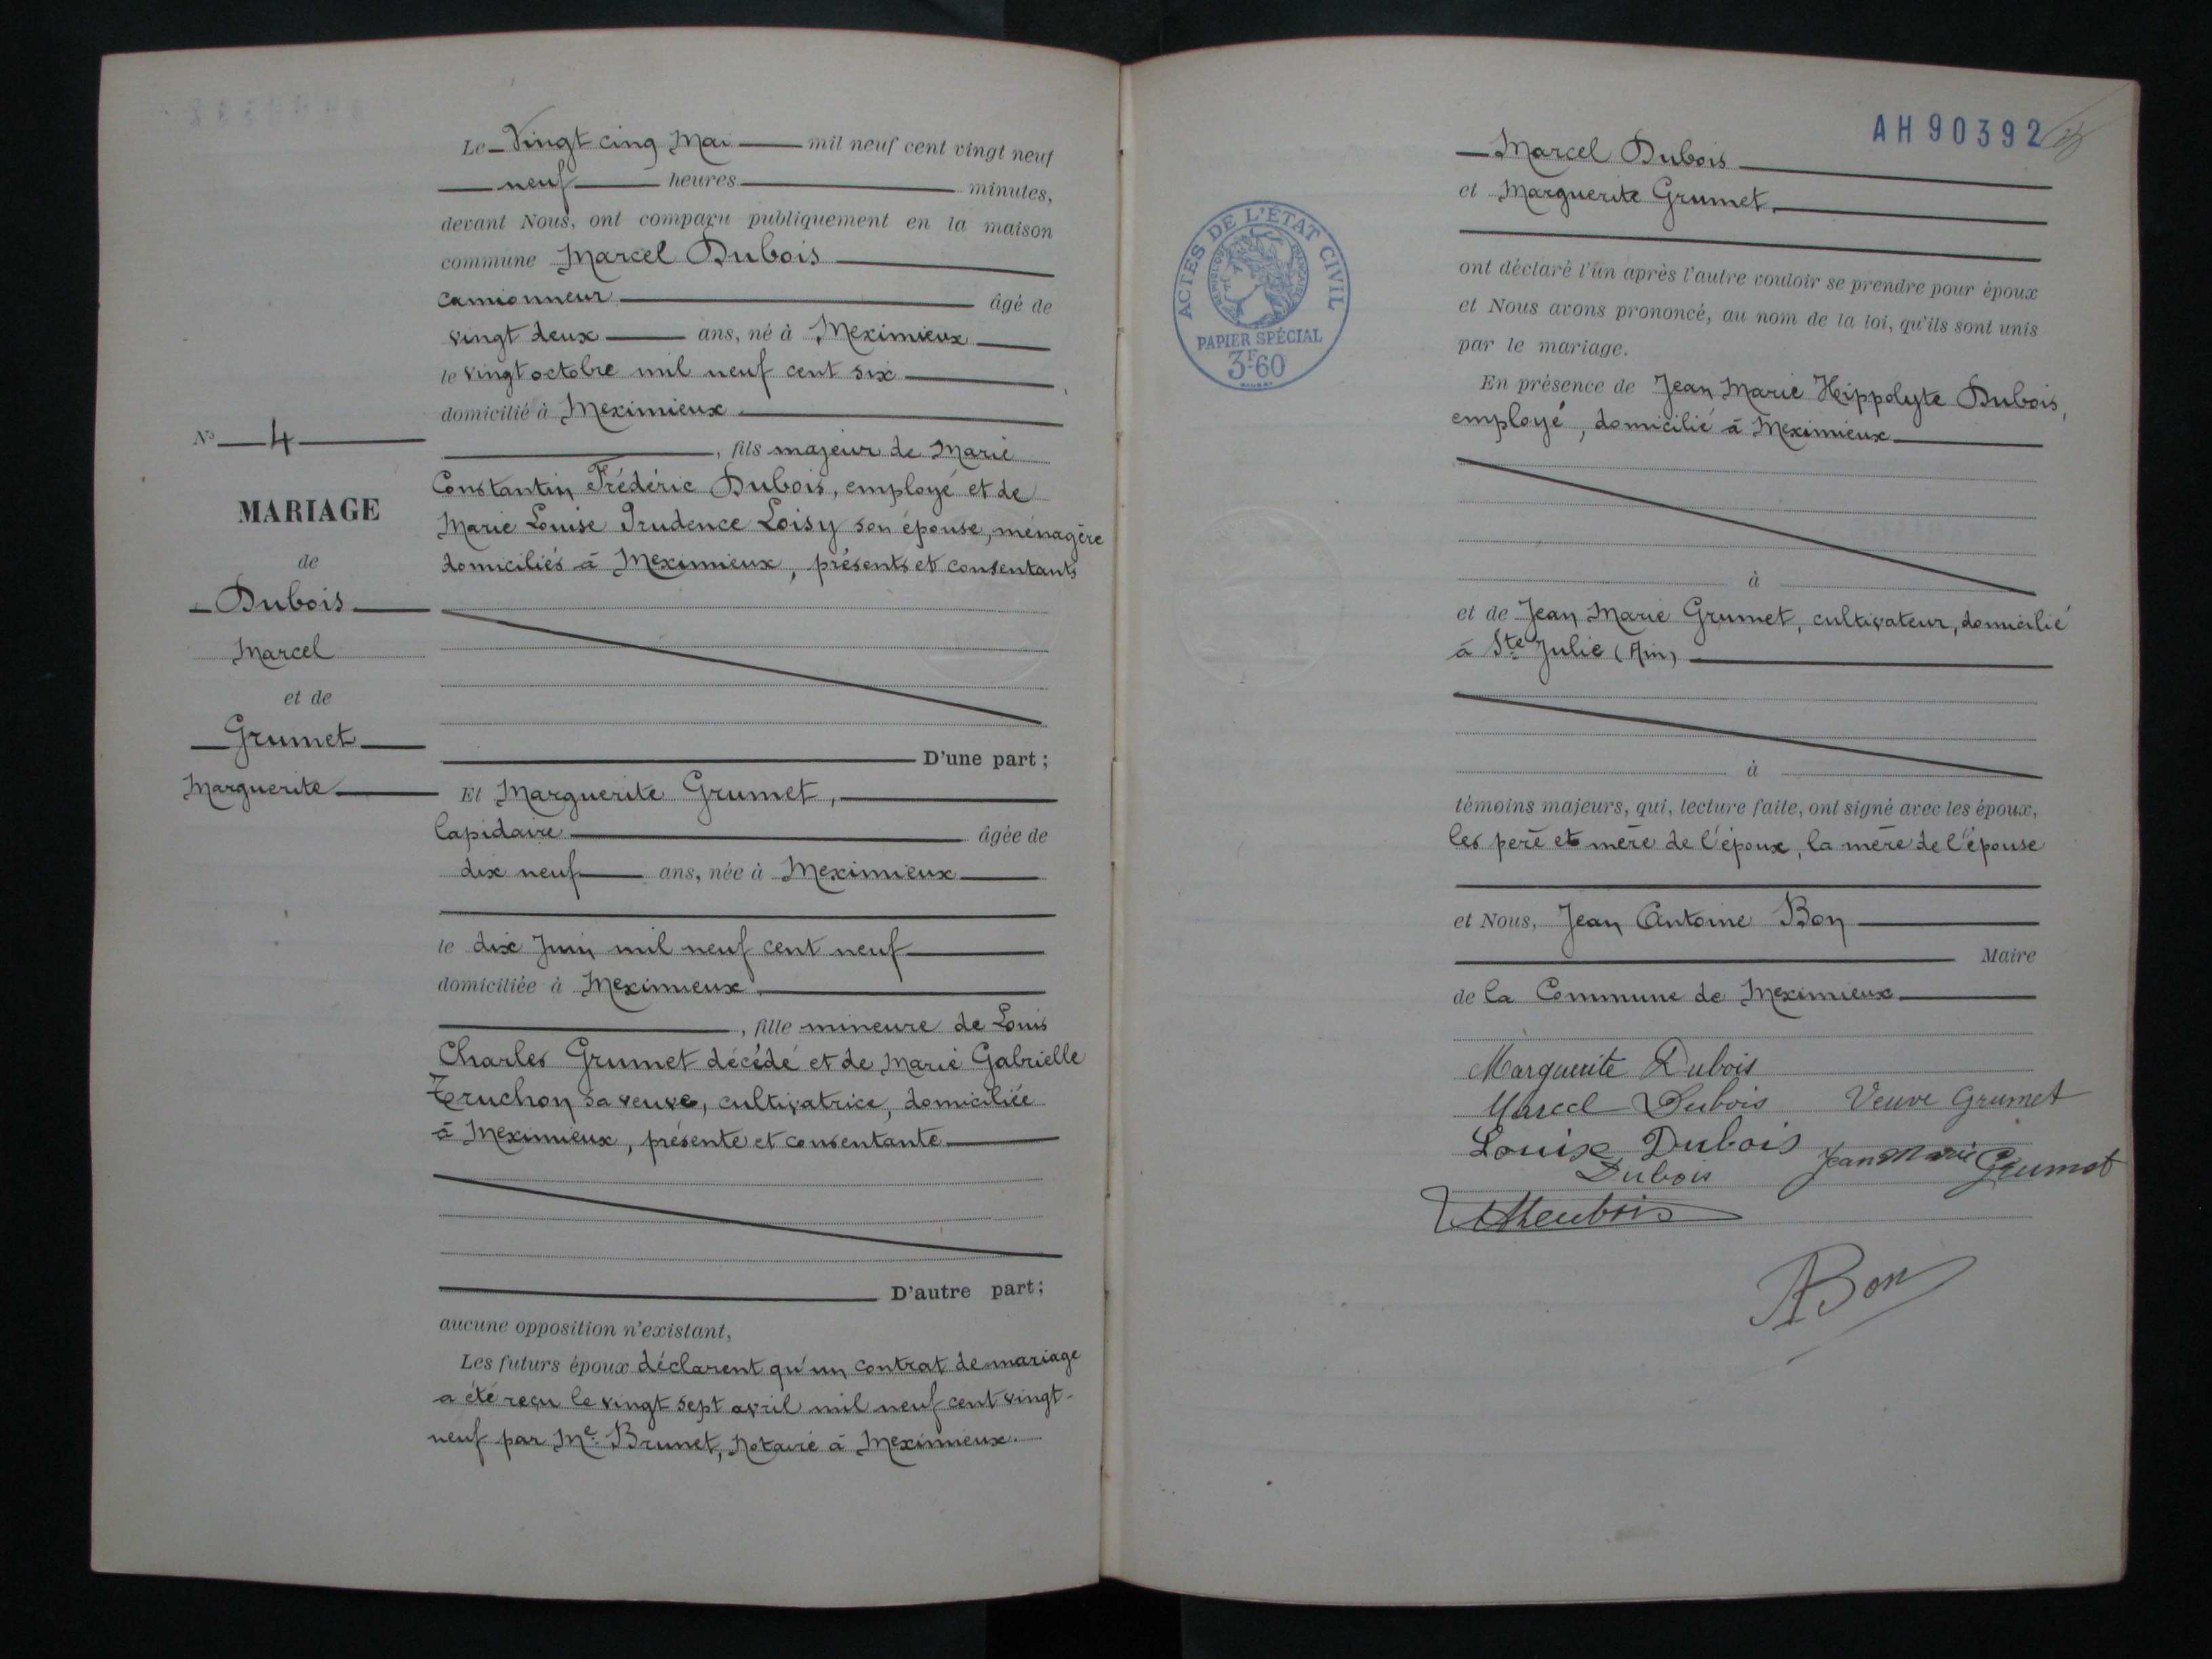 Le Vingt cinq Mai mil neuf cent vingt neuf
neuf heures minutes,
devant Nous, ont comparu publiquement en la maison
commune Marcel Dubois
camionneur âgé de
vingt deux ans, né à Meximieux
le vingt octobre mil neuf cent six
domicilié à Meximieux
, fils majeur de Marie
Constantin Frédéric Dubois, employé et de
Marie Louise Prudence Loisy son épouse, ménagère
domiciliés à Meximieux, présents et consentants
D'une part ;
Et Marguerite Grumet,
lapidaire âgée de
dix neuf ans, née à Meximieux
le dix Juin mil neuf cent neuf
domiciliée à Meximieux
, fille mineure de Louis
Charles Grumet décédé et de Marie Gabrielle
Truchon sa veuve, cultivatrice, domiciliée
à Meximieux, présente et consentante
D'autre part ;
aucune opposition n'existant,
Les futurs époux déclarent qu'un contrat de mariage
a été reçu le vingt sept avril mil neuf cent vingt-
neuf par Me Brunet, Notaire à Meximieux.
No 4
MARIAGE
de
Dubois
Marcel
et de
Grumet
Marguerite
AH 90392
ACTES DE L'ÉTAT CIVIL
RÉPUBLIQUE FRANÇAISE
PAPIER SPÉCIAL
3F60
Marcel Dubois
et Marguerite Grumet
ont déclaré l'un après l'autre vouloir se prendre pour époux
et Nous avons prononcé, au nom de la loi, qu'ils sont unis
par le mariage.
En présence de Jean Marie Hippolyte Dubois,
employé, domicilié à Meximieux
à
et de Jean Marie Grumet, cultivateur, domicilié
à Ste Julie (Ain)
à
témoins majeurs, qui, lecture faite, ont signé avec les époux,
les père et mère de l'époux, la mère de l'épouse
et Nous, Jean Antoine Bon
Maire
de la Commune de Meximieux
Marguerite Dubois
Marcel Dubois Veuve Grumet
Louise Dubois Jean Marie Grumet
Dubois
ABon